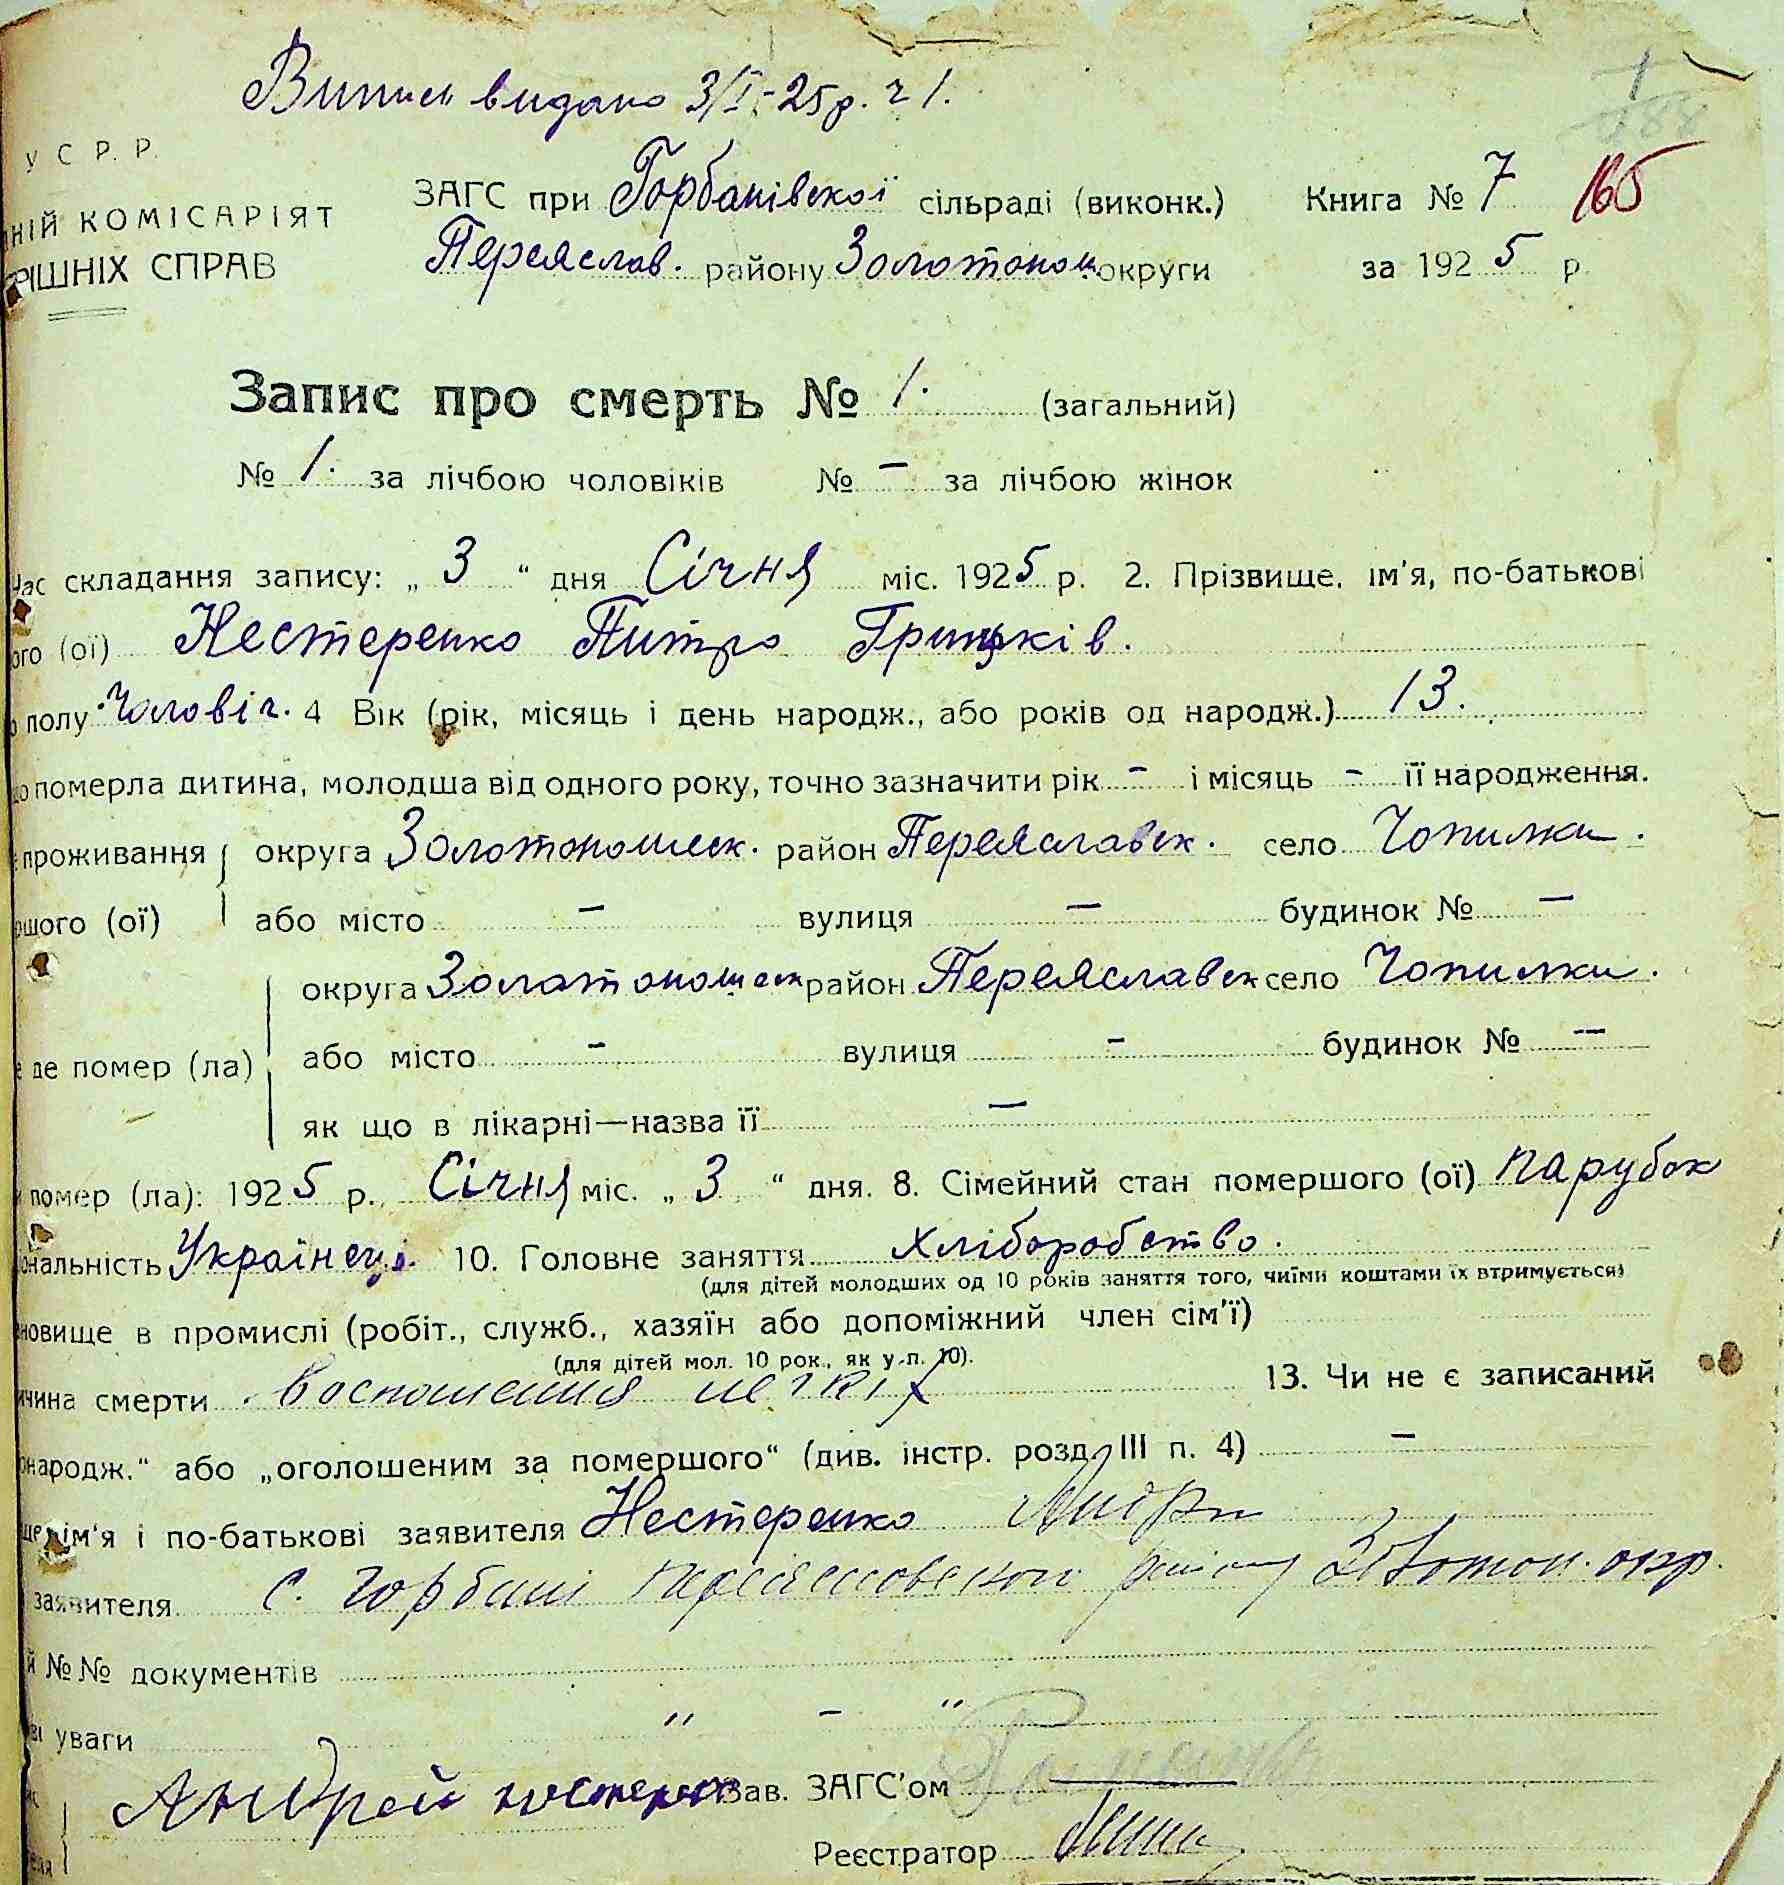 Випис видано 3/I-25р. ч 1.
1
188
У С Р. Р.
ЗАГС при Горбанівскої сільраді (виконк.) Книга № 7 165
НІЙ КОМІСАРІЯТ
Переяслав. району Золотонош округи за 1925 р.
РІШНІХ СПРАВ
Запис про смерть № 1. (загальний)
№ 1. за лічбою чоловіків № – за лічбою жінок
Час складання запису: „ 3 “ дня Січня міс. 1925 р. 2. Прізвище, ім'я, по-батькові
ого (ої) Нестеренко Питро Грицьків.
полу Чоловіч. 4 Вік (рік, місяць і день народж., або років од народж.) 13.
о померла дитина, молодша від одного року, точно зазначити рік – і місяць – її народження.
проживання округа Золотоношськ. район Переяславск. село Чопилки.
ршого (ої) або місто – вулиця – будинок № –
округа Золотоношськ район Переяславск село Чопилки.
де помер (ла) або місто – вулиця – будинок № –
як що в лікарні—назва її –
помер (ла): 1925 р. Січня міс. „ 3 “ дня. 8. Сімейний стан помершого (ої) парубок
ональність Українец. 10. Головне заняття хліборобство.
(для дітей молодших од 10 років заняття того, чиїми коштами їх втримується)
новище в промислі (робіт., служб., хазяїн або допоміжний член сім'ї)
(для дітей мол. 10 рок., як у п. 10).
ичина смерти воспошения легких 13. Чи не є записаний
онародж.“ або „оголошеним за помершого“ (див. інстр. розд. III п. 4) –
ім'я і по-батькові заявителя Нестеренко Андри
заявителя с. Горбані Переяславского району Золотон. окр.
й №№ документів
ві уваги „ – “
Андрей нестеренко Зав. ЗАГС'ом
Реєстратор